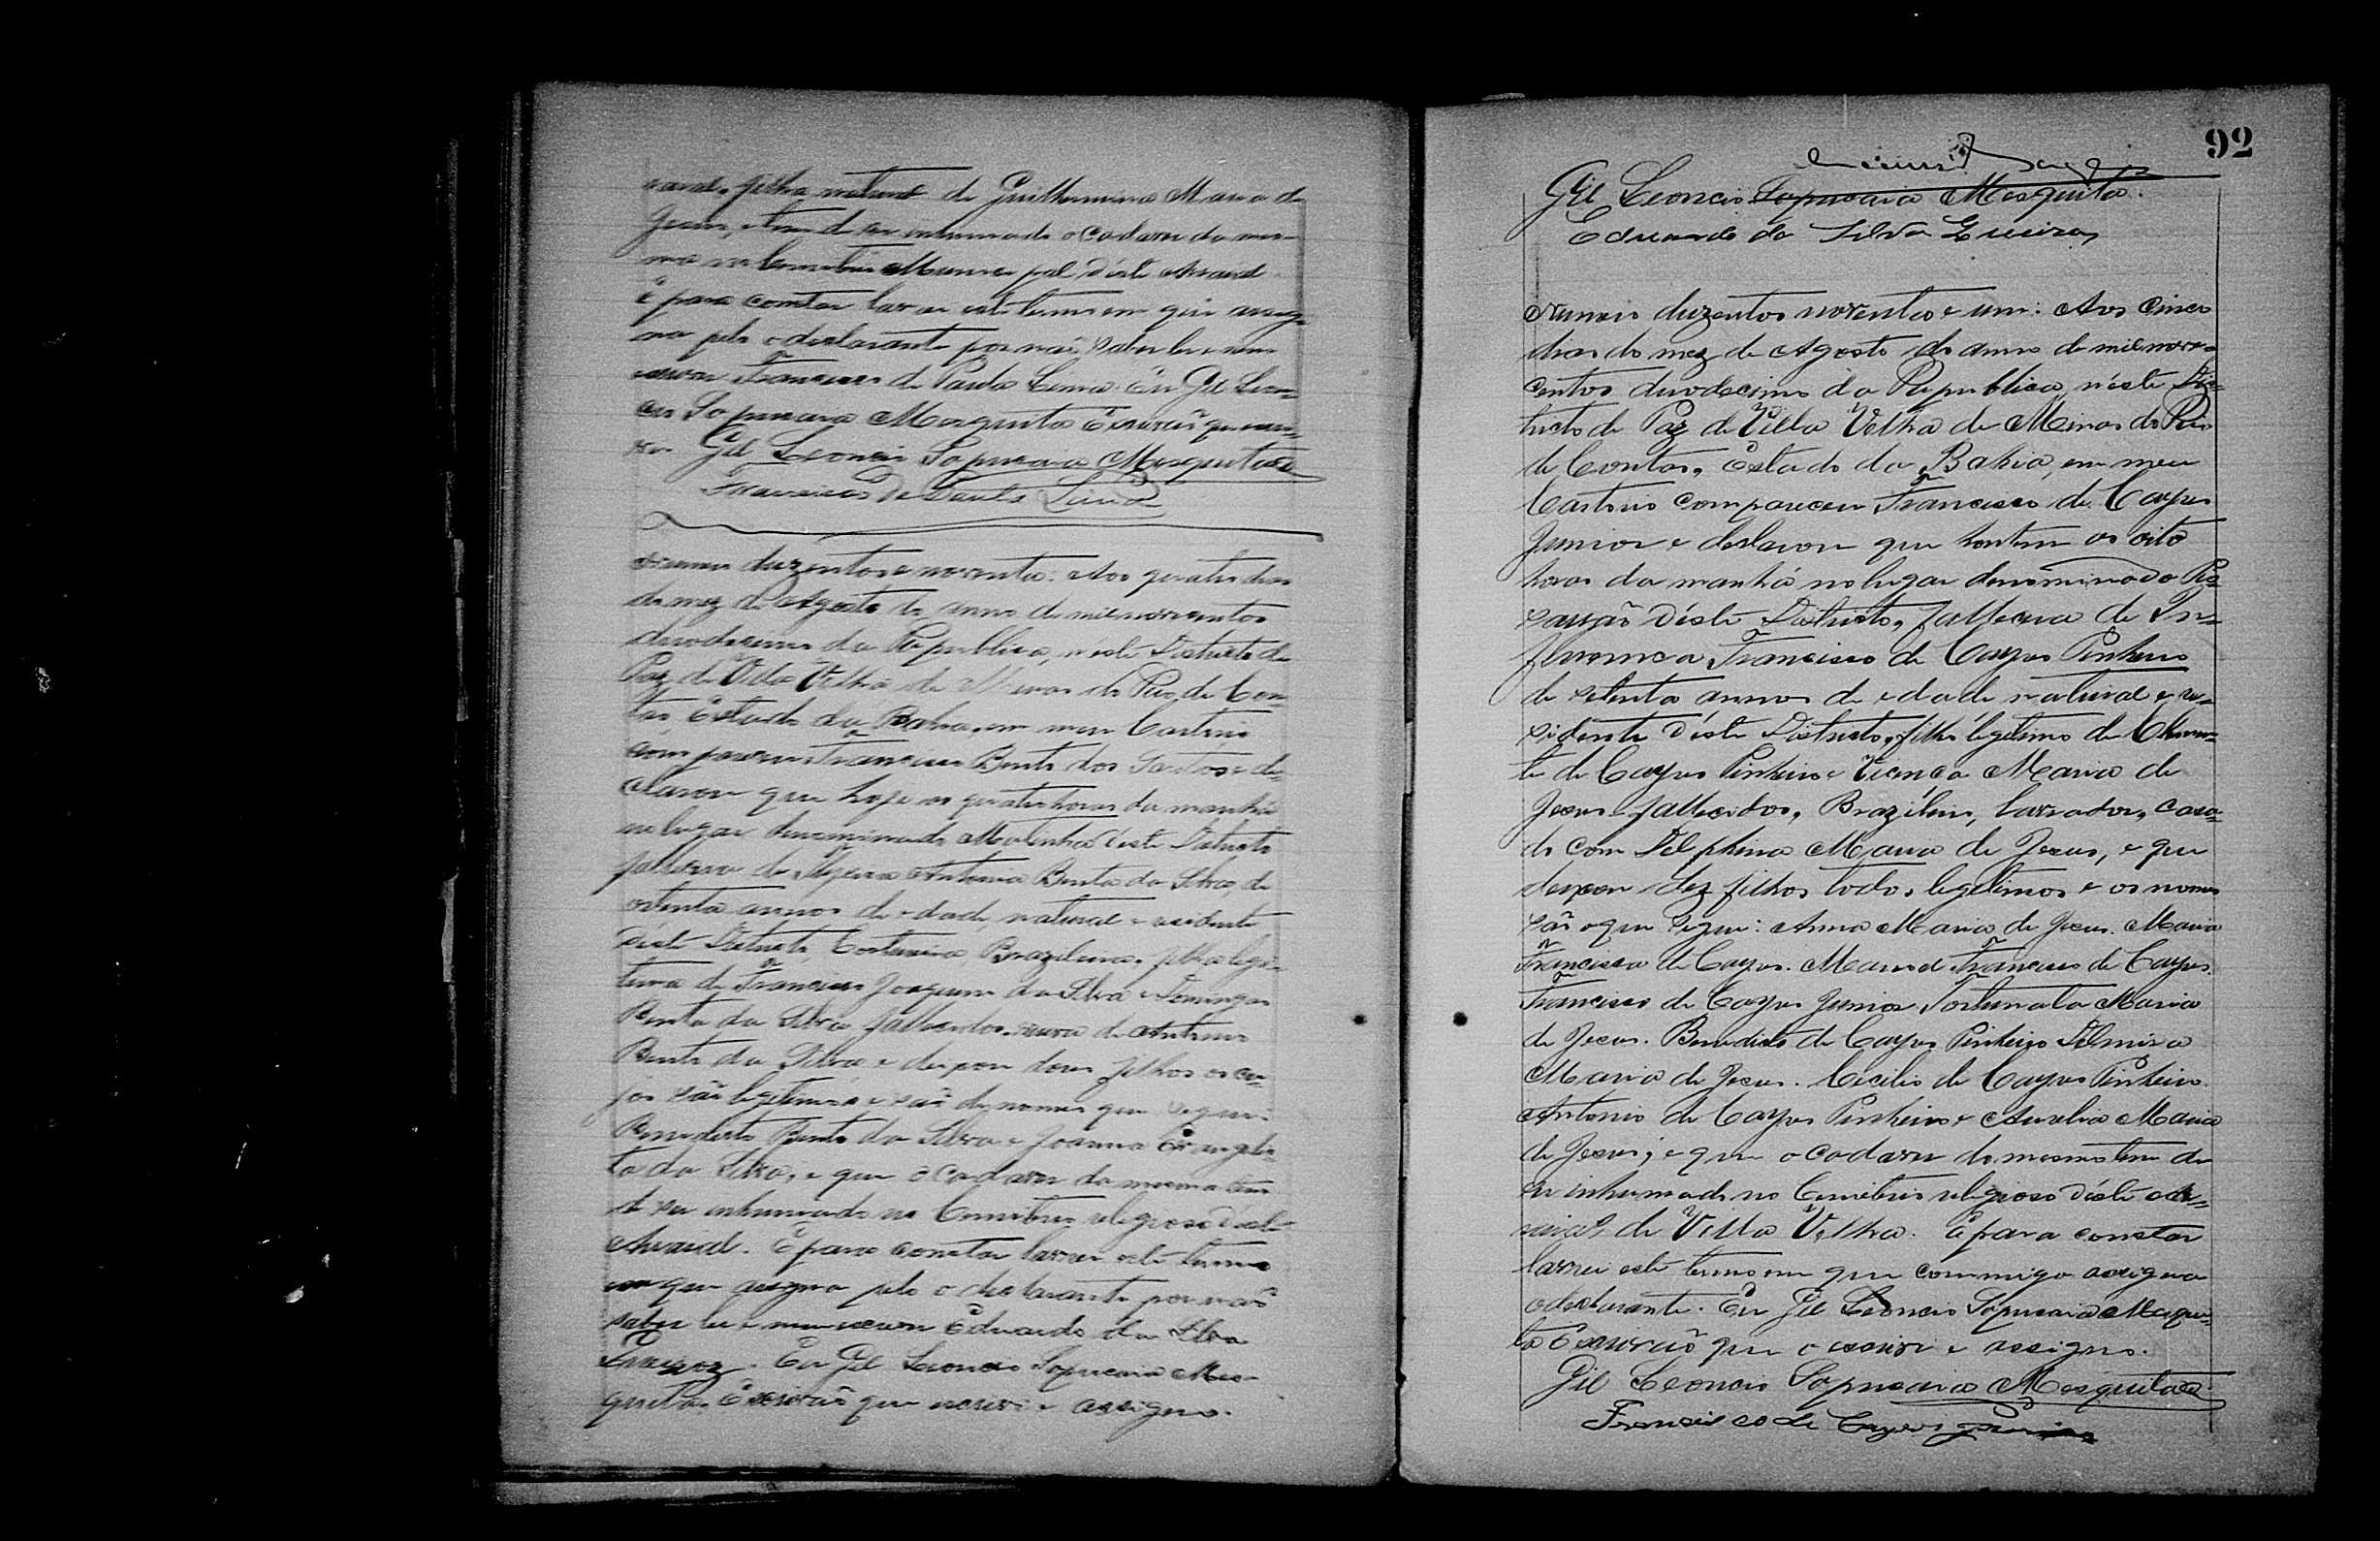 filha natural de Guilhermina Maria de
Jesus, e tem de ser inhumado o cadaver da mes-
ma no Cemiterio Municipal déste Arraial
E para constar lavrei este termo em que assig-
na pelo o declarante por não saber ler e nem
escrever Francisco de Paula Lima. Eu Gil Leon-
cio Sapucaia Mesquita Escrivão que escre-
vi. Gil Leoncio Sapucaia Mesquita
Francisco de Paula Lima
Numero duzentos e noventa: Aos quatro dias
do mez de Agosto do anno de mil novecentos
duodecimo da Republica, neste Districto de
Paz de Villa Velha de Minas do Rio de Con-
tas, Estado da Bahia, em meu Cartorio
compareceu Francisco Bento dos Santos e de-
clarou que hoje as quatro horas da manhã
no lugar denominado Matinha déste Districto
falleceu de Antonia Benta da Silva, de
oitenta annos de edade, natural e residente
déste Districto, Costureira, Brazileira, filha legi-
tima de Francisco Joaquim da Silva e Domingas
Benta da Silva, fallecidos, viuva de Antonio
Bento da Silva, e deixou dous filhos os cu-
jos são legitimos e são de nomes que segue:
Benedicto Bento da Silva e Joanna Evangelis-
ta da Silva; e que o cadaver da mesma tem
de ser inhumado no Cemiterio religioso déste
Arraial. E para constar lavrei este termo
em que assigna pelo o declarante por não
saber ler e nem escrever Eduardo da Silva
Eu Gil Leoncio Sapucaia Mes-
quita, Escrivão que escrevi e assigno.
92
Gil Leoncio Sapucaia Mesquita.
Eduardo da Silva
Numero duzentos noventa e um: Aos cinco
dias do mez de Agosto do anno de mil nove-
centos duodecimo da Republica, néste Dis-
tricto de Paz de Villa Velha de Minas do Rio
de Contas, Estado da Bahia, em meu
Cartorio compareceu Francisco de Cayres
Junior e declarou que hontem as oito
horas da manhã no lugar denominado
déste Districto, falleceu de In-
fluenca Francisco de Cayres Pinheiro
de setenta annos de edade natural e re-
sidente déste Districto, filho legitimo de Clemen-
te de Cayres Pinheiro e Maria de
Jesus fallecidos, Brazileiro, lavrador, casa-
do com Delphina Maria de Jesus, e que
deixou dez filhos todos legitimos e os nomes
são o que segue: Anna Maria de Jesus. Maria
Francisca de Cayres. Manoel Francisco de Cayres.
Francisco de Cayres Junior Fortunata Maria
de Jesus. Benedicto de Cayres Pinheiro Idmira
Maria de Jesus. Cecilio de Cayres Pinheiro.
Antonio de Cayres Pinheiro e Aurelia Maria
de Jesus; e que o cadaver do mesmo tem de
ser inhumado no Cemiterio religioso déste Ar-
raial de Villa Velha. E para constar
lavrei este termo em que commigo assigna
o declarante. Eu Gil Leoncio Sapucaia Mesqui-
ta Escrivão que o escrevi e assigno.
Gil Leoncio Sapucaia Mesquita
Francisco de Cayres Junior